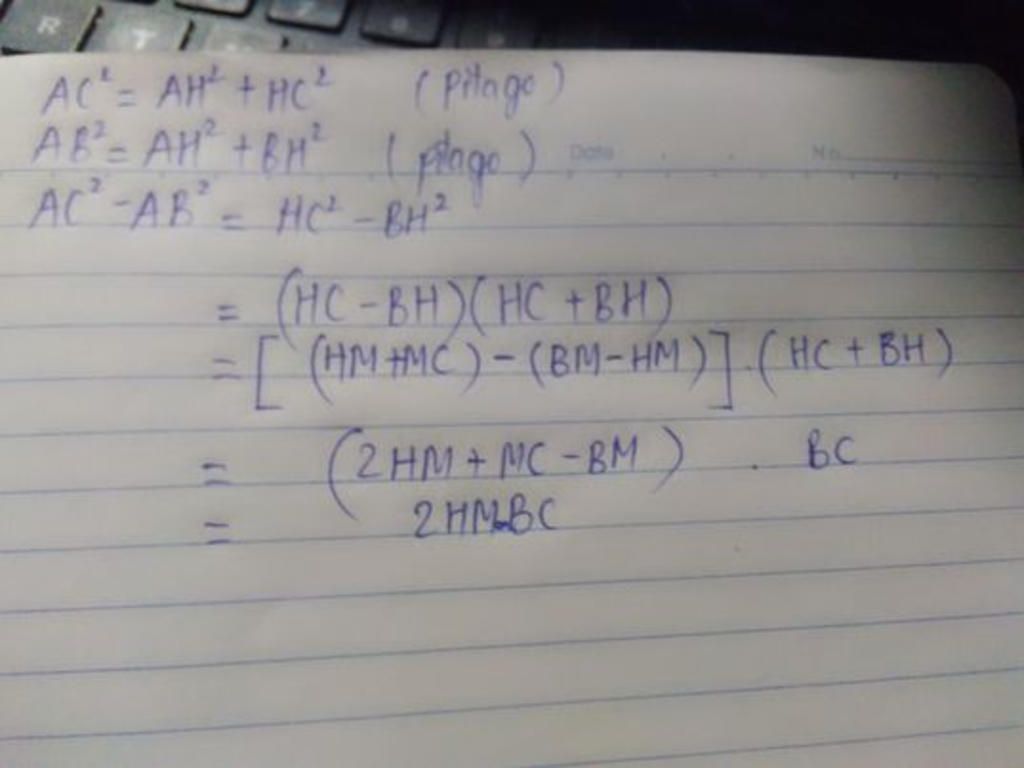 R T
AC² = AH² + HC² (pitago)
AB² = AH² + BH² (pitago) Date No
AC² - AB² = HC² - BH²
= (HC - BH)(HC + BH)
= [(HM + MC) - (BM - HM)] . (HC + BH)
= (2HM + MC - BM) . BC
= 2HM.BC